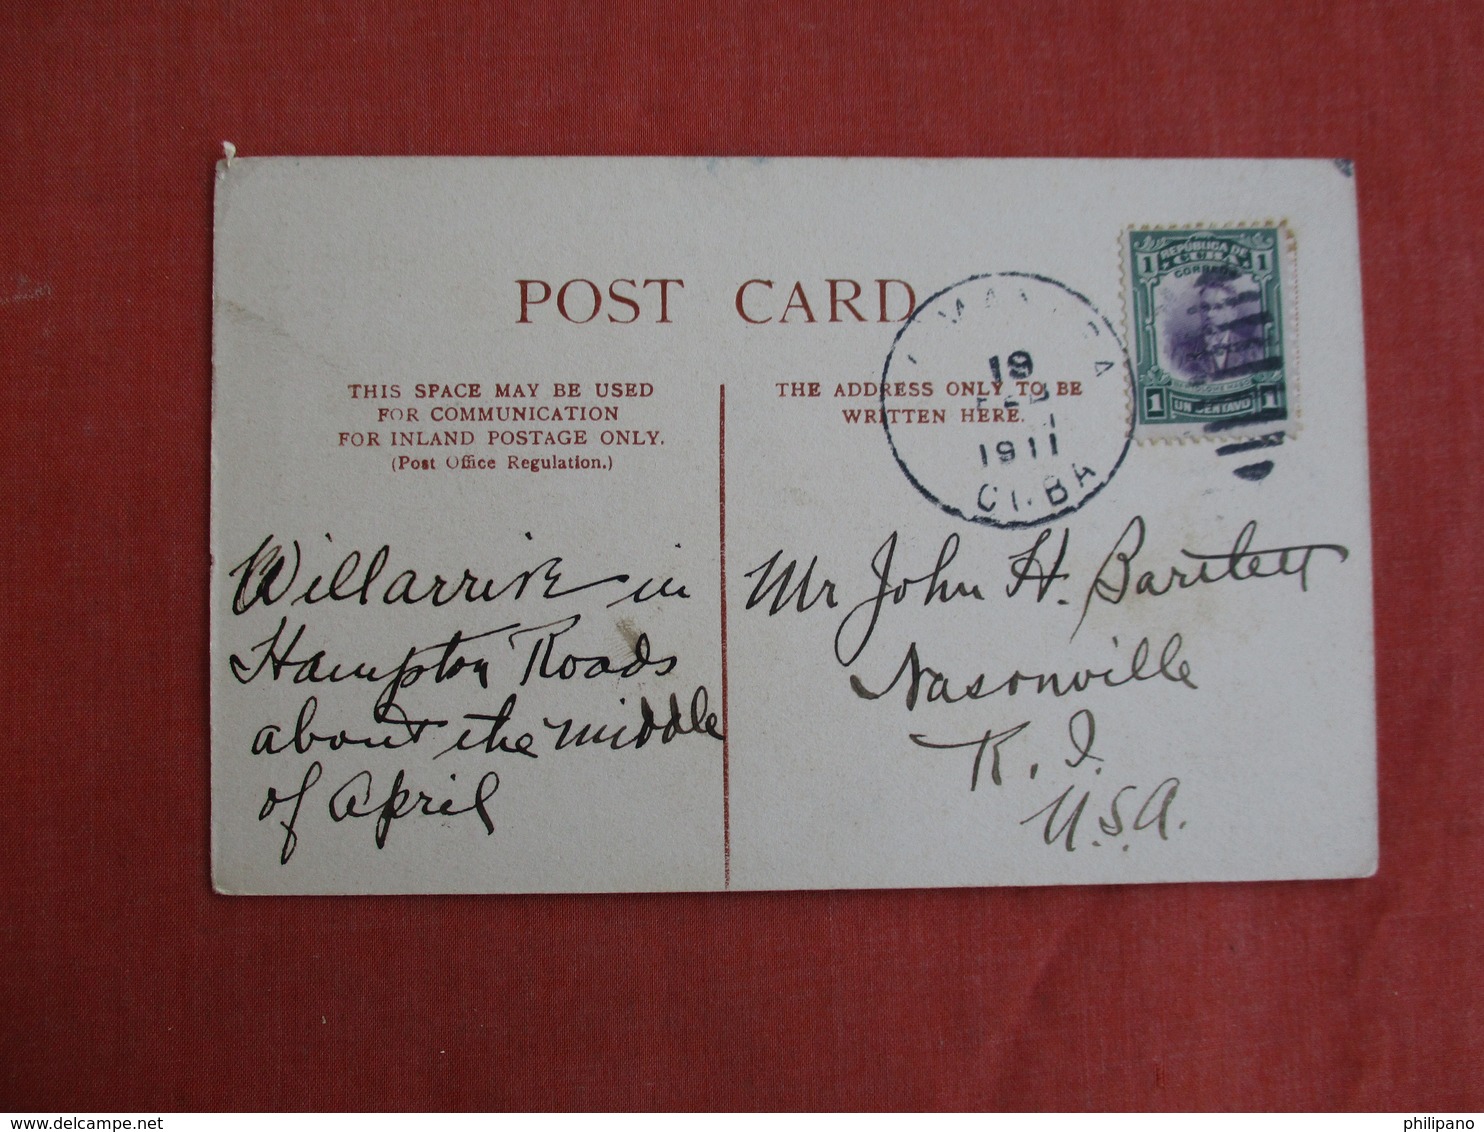 POST CARD
THIS SPACE MAY BE USED
FOR COMMUNICATION
FOR INLAND POSTAGE ONLY.
(Post Office Regulation.)
THE ADDRESS ONLY TO BE
WRITTEN HERE.
19
FEB
1911
CUBA
1 REPUBLICA DE 1
CUBA
CORREOS
1 UN CENTAVO 1
Will arrive in
Hampton Roads
about the middle
of April
Mr John H. Bartlett
Nasonville
R. I.
U.S.A.
philipano